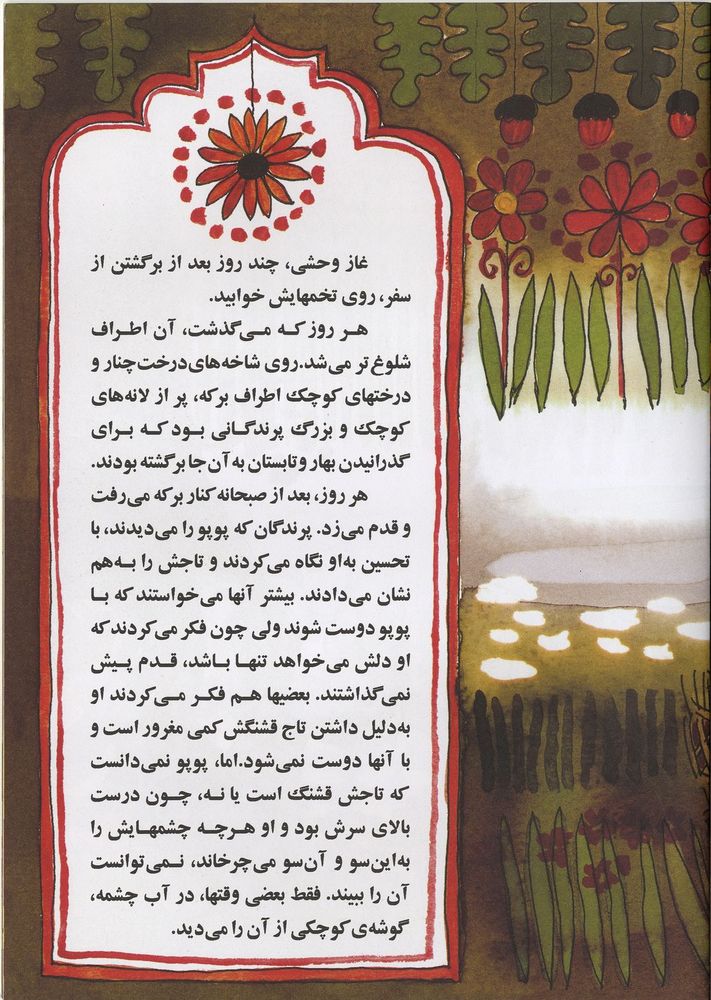 غاز وحشی، چند روز بعد از برگشتن از
سفر، روی تخمهایش خوابید.
هر روز که می‌گذشت، آن اطراف
شلوغ‌تر می‌شد.روی شاخه‌های درخت چنار و
درختهای کوچک اطراف برکه، پر از لانه‌های
کوچک و بزرگ پرندگانی بود که برای
گذرانیدن بهار و تابستان به آن جا برگشته بودند.
هر روز، بعد از صبحانه کنار برکه می‌رفت
و قدم می‌زد. پرندگان که پوپو را می‌دیدند، با
تحسین به‌او نگاه می‌کردند و تاجش را به‌هم
نشان می‌دادند. بیشتر آنها می‌خواستند که با
پوپو دوست شوند ولی چون فکر می‌کردند که
او دلش می‌خواهد تنها باشد، قدم پیش
نمی‌گذاشتند. بعضیها هم فکر می‌کردند او
به‌دلیل داشتن تاج قشنگش کمی مغرور است و
با آنها دوست نمی‌شود.اما، پوپو نمی‌دانست
که تاجش قشنگ است یا نه، چون درست
بالای سرش بود و او هرچه چشمهایش را
به‌این‌سو و آن‌سو می‌چرخاند، نمی‌توانست
آن را ببیند. فقط بعضی وقتها، در آب چشمه،
گوشه‌ی کوچکی از آن را می‌دید.